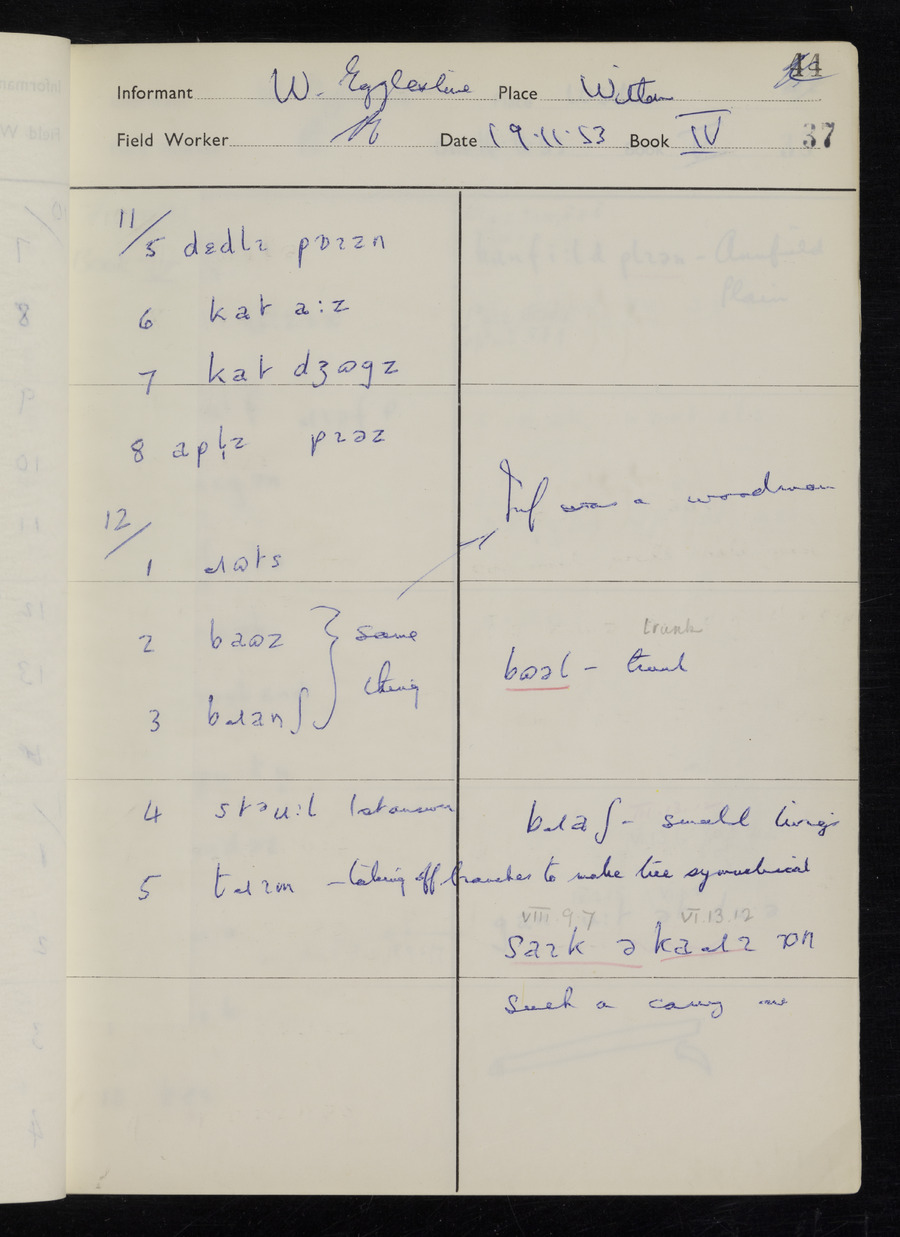 44
Informant W. Egglestone Place Witton
Field Worker Date 19·11·53 Book IV 37
11/5 dɛdlɪ pɒɪzn
6 kat a:z
7 kat dʒɷgz
8 apl̩z
12/
1 ɹɷts
2 baɷz } same
3 bɹanʃ } thing
4 latanswer
5 tɹɪm – taking off branches to make tree symmetrical
Inf was a woodman
trunk
bɷəl – trunk
bɹaʃ – small livings
VIII.9,7 VI.13.12
saɪk ə kaɹɪ ɒn
such a carry on